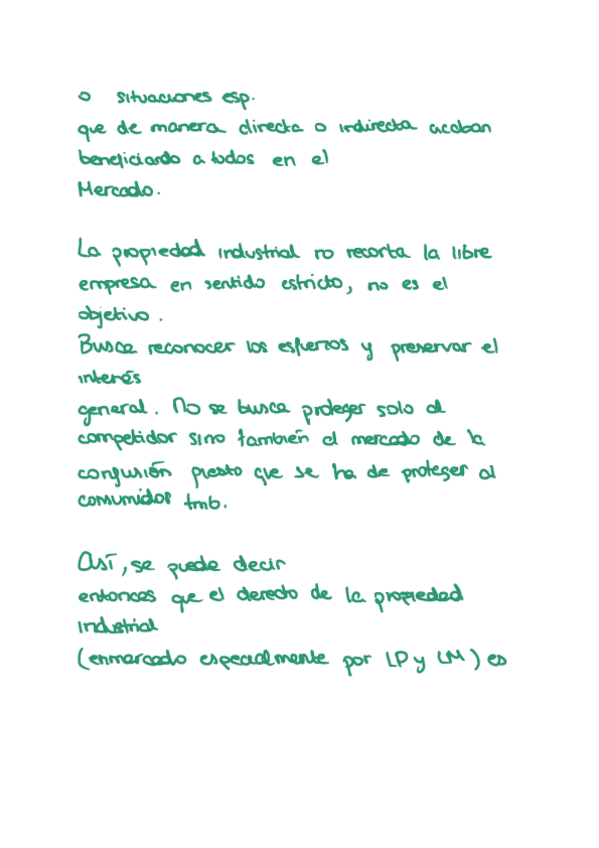 o situaciones esp.
que de manera directa o indirecta acaban
beneficiando a todos en el
Mercado.
La propiedad industrial no recorta la libre
empresa en sentido estricto, no es el
objetivo.
Busca reconocer los esfuerzos y preservar el
interés
general. No se busca proteger solo al
competidor sino también el mercado de la
confusión puesto que se ha de proteger al
consumidor tmb.
Así, se puede decir
entonces que el derecho de la propiedad
industrial
(enmarcado especialmente por LP y LM) es